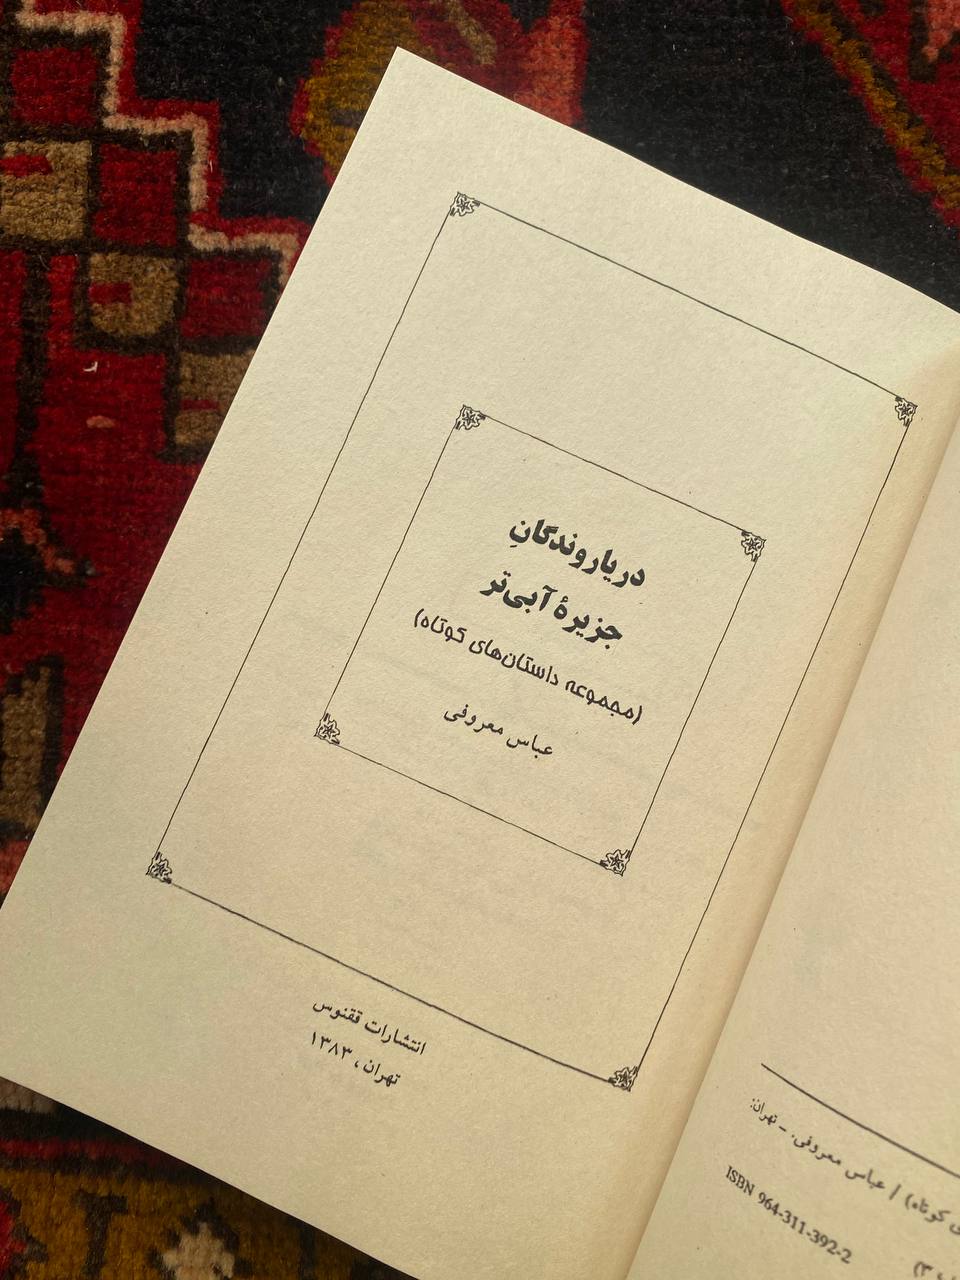 دریاروندگانِ
جزیرهٔ آبی‌تر
(مجموعه داستان‌های کوتاه)
عباس معروفی
انتشارات ققنوس
تهران، ۱۳۸۳
ی کوتاه) / عباس معروفی. ـ تهران:
ISBN 964-311-392-2